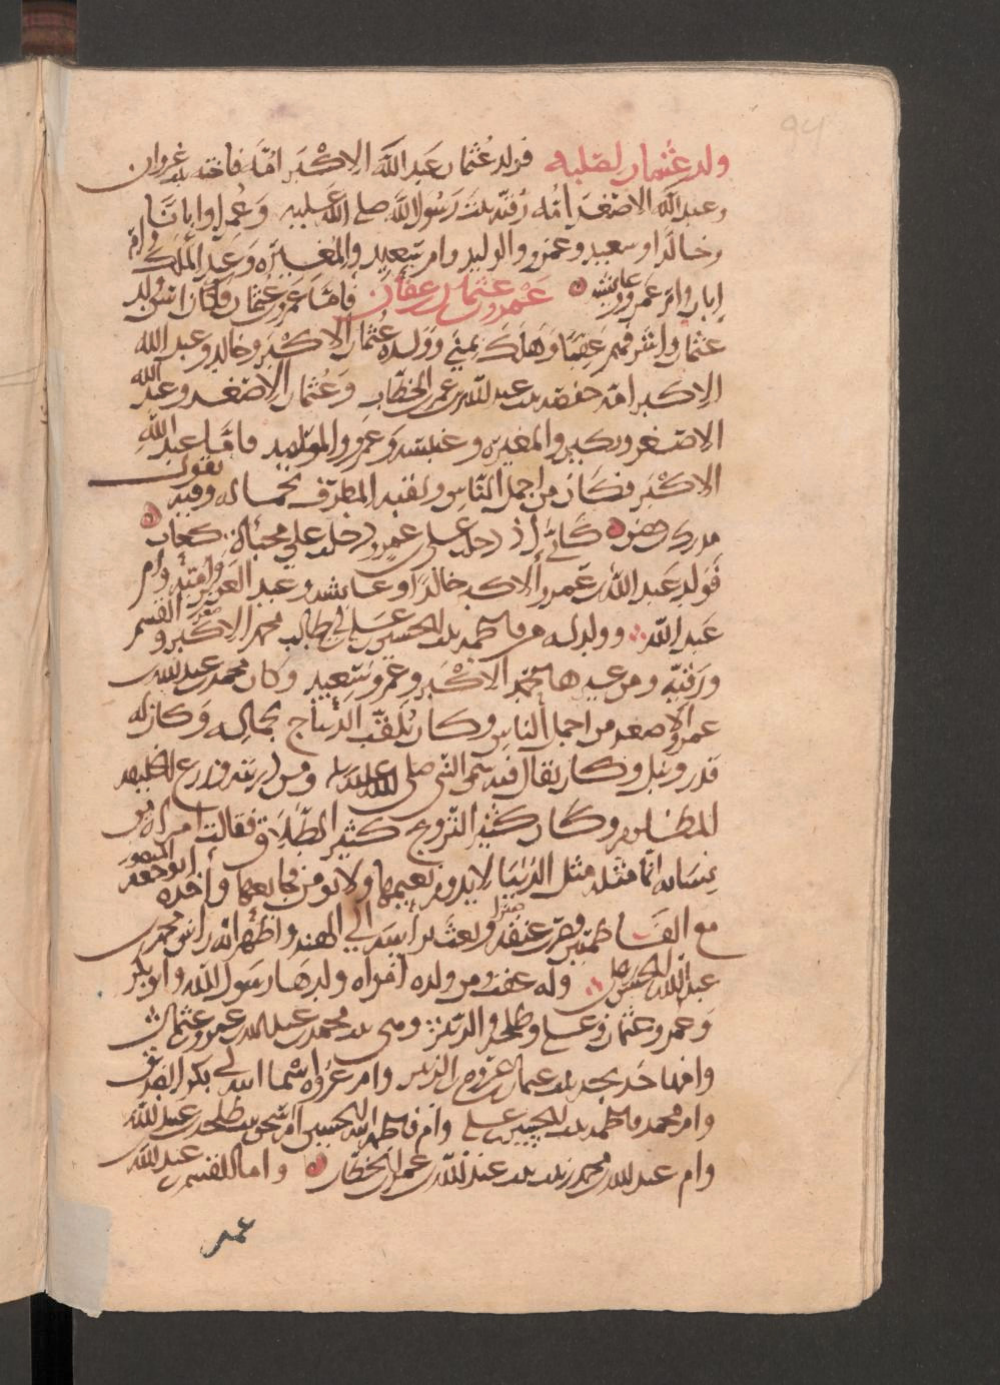 ولد عثمان لصلبه فولد عثمان عبد الله الاكبر امه فاخته بنت غزوان
وعبد الله الاصغر امه رقية بنت رسول الله صلى الله عليه وعمرا وابانا
وخالدا وسعيد وعمرو والوليد وام سعيد والمغيره وعبد الملك وام
ابان وام عمرو وعائشه عمرو بن عثمان بن عفان فاما عمرو بن عثمان فكان اسن ولد
عثمان واشرفهم عقبا وهلك بمنى وولده عثمان الاكبر وخالد وعبد الله
الاكبر امه حفصه بنت عبد الله بن عمر بن الخطاب وعثمان الاصغر وعبد الله
الاصغر وبكير والمغيره وعنبسه وعمرو والوليد فاما عبد الله
الاكبر فكان من اجمل الناس ولقبه المطرف بجماله وفيه يقول
مدرك بن حصن كاني اذ دخلت على بن عمرو دخلت على مخبأة كعاب
فولد عبد الله بن عمرو الاكبر خالدا وعائشه وعبد العزيز وامية وام
عبد الله وولد له من فاطمه بنت الحسين بن علي بن ابي طالب محمد الاكبر والقسم
ورقيه ومن غيرها محمد الاكبر وعمرو وسعيد وكان محمد بن عبد الله بن
عمرو الاصغر من اجمل الناس وكان يلقب الديباج بجماله وكان له
قدر ونبل وكان يقال فيه سمي النبي صلى الله عليه ومن ذريته وزرع الخليفه
المظلوم وكان كثير التزويج كثير الطلاق فقالت امراه من
نسائه انما مثله مثل الدنيا لا يدوم نعيمها ولا يومن فجائعها واخذه ابو جعفر المنصور
مع الفاطميين فضرب عنقه وبعث براسه الى الهند واظهر انه راس محمد بن
عبد الله بن الحسن وله عقب ومن ولده امراه ولدها رسول الله وابو بكر
وعمر وعثمان وعلي وطلحه والزبير وهي بنت محمد بن عبد الله بن عمرو بن عثمان
وامها خديجه بنت عثمان بن عروه بن الزبير وام عروه اسما ابنة ابي بكر الصديق
وام محمد فاطمه بنت الحسين بن علي وام فاطمه ابنة الحسين ام اسحق بنت طلحه بن عبيد الله
وام عبد الله بن محمد زينب بنت عبد الله بن عمر بن الخطاب واما القسم بن عبد الله
عمر